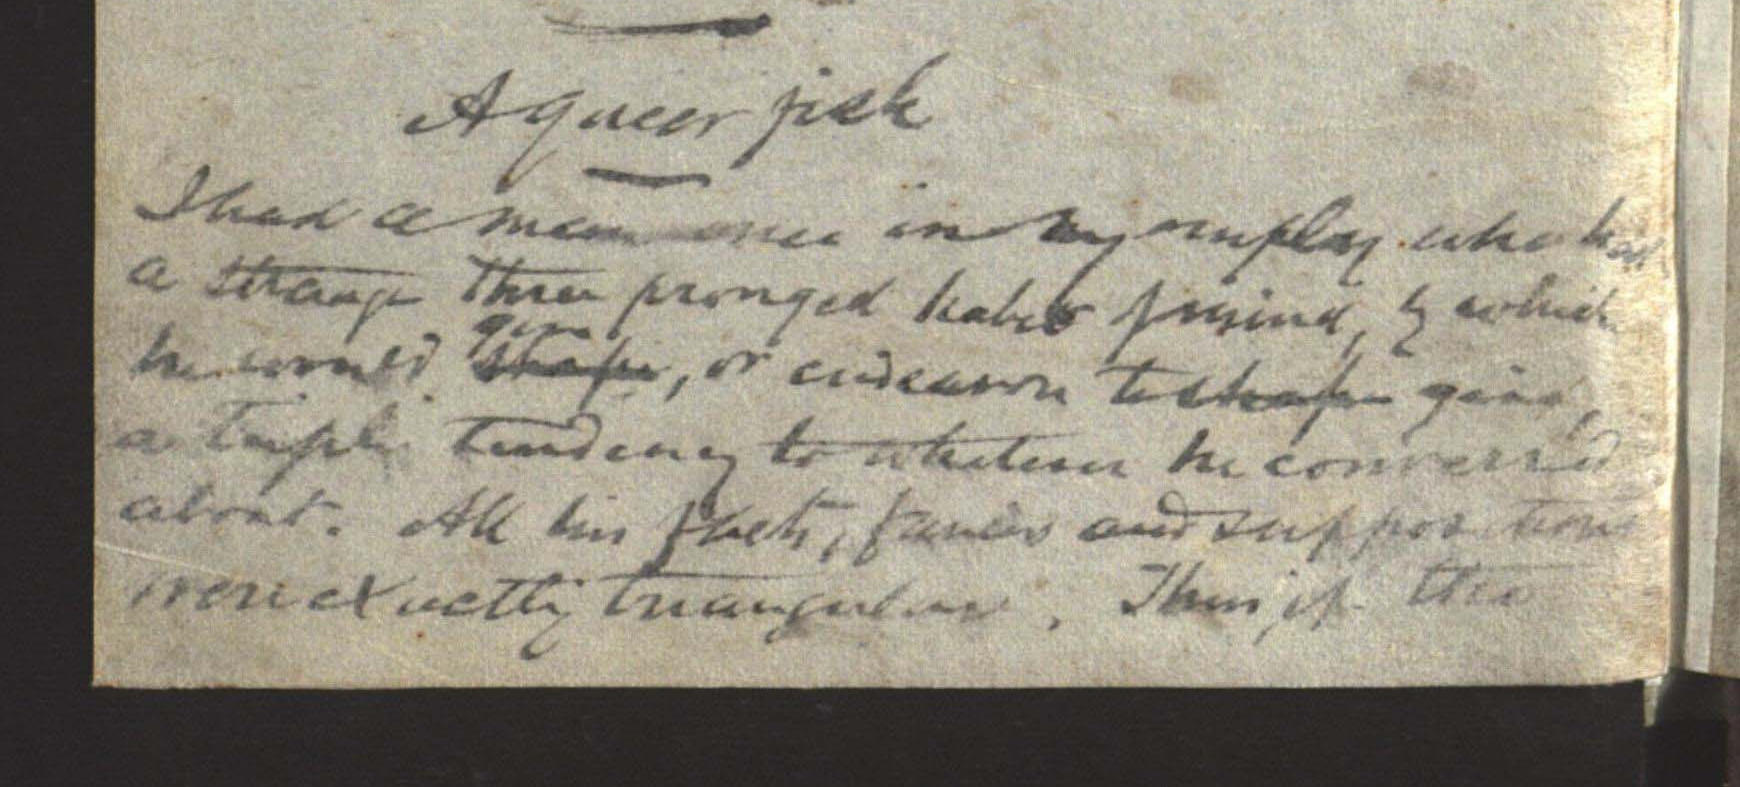 A queer fish
I had a man once in my employ who had
a strange three pronged habit of mind, by which
he would give shape, or endeavor to shape give,
a triple tendency to whatever he conversed
about. All his facts, fancies and suppositions
were exactly triangular. Thus, if the